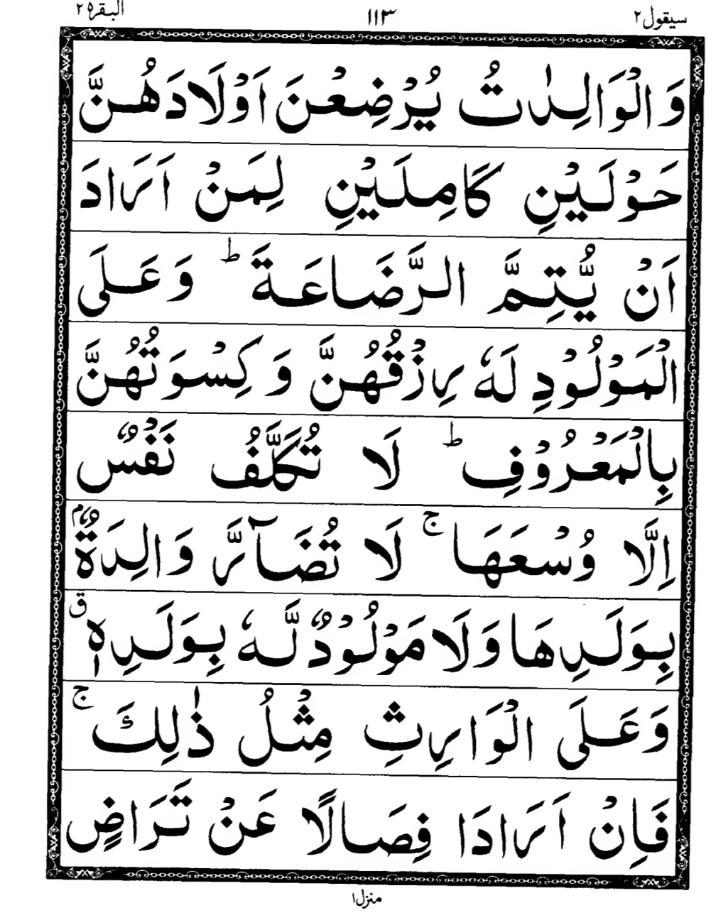 سیقول۲ ۱۱۳ البقرة۲
وَالْوَالِدٰتُ يُرْضِعْنَ اَوْلَادَهُنَّ
حَوْلَيْنِ كَامِلَيْنِ لِمَنْ اَرَادَ
اَنْ يُّتِمَّ الرَّضَاعَةَ ؕ وَعَلَى
الْمَوْلُوْدِ لَهٗ رِزْقُهُنَّ وَكِسْوَتُهُنَّ
بِالْمَعْرُوْفِ ؕ لَا تُكَلَّفُ نَفْسٌ
اِلَّا وُسْعَهَا ۚ لَا تُضَآرَّ وَالِدَةٌۢ
بِوَلَدِهَا وَلَا مَوْلُوْدٌ لَّهٗ بِوَلَدِهٖ ق
وَعَلَى الْوَارِثِ مِثْلُ ذٰلِكَ ۚ
فَاِنْ اَرَادَا فِصَالًا عَنْ تَرَاضٍ
منزل۱